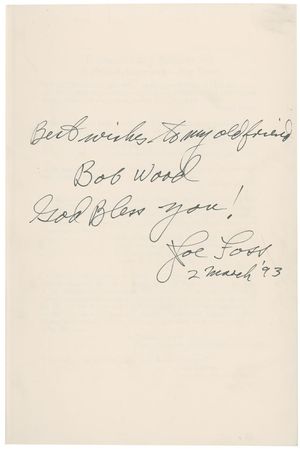 Best wishes to my old friend
Bob Wood
God Bless you!
Joe Foss
2 March '93